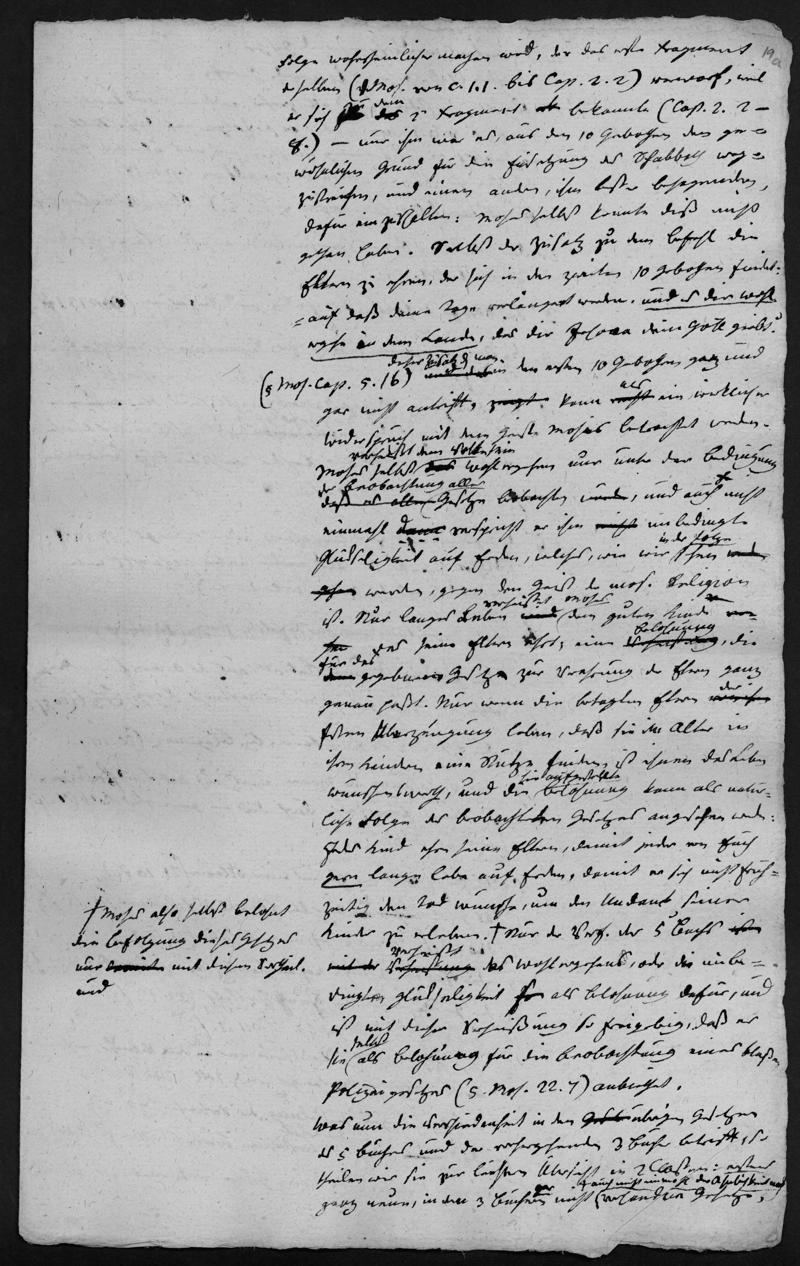 19a
Folge wahrscheinlicher machen wird, der das erste Fragment
desselben (5 Mos. von C. 1. 1. bis Cap. 2. 2) verwarf, weil
er sich zu dem 2 Fragment bekannte (Cap. 2. 2 –
8.) – nur ihm war es, aus den 10 Gebothen den ge-
wöhnlichen Grund für die Einsetzung des Schabbath weg-
zustreichen, und einen andern, ihm besser behagenden,
dafür einzustellen: Moses selbst konnte diß nicht
gethan haben. Selbst der Zusatz zu dem Befehl die
Eltern zu ehren, der sich in den zweiten 10 Gebothen findet:
= auf daß deine Tage verlängert werden, und es dir wohl
ergehe in dem Lande, das dir Jehova dein Gott giebt
(5 Mos. Cap. 5. 16) dieser Zusatz den man in den ersten 10 Gebothen ganz und
gar nicht antrift, kann als ein wirklicher
Widerspruch mit dem Geiste Moses betrachtet werden.
Moses selbst verheißt dem Volke sein Wohlergehen nur unter der Bedingung
der Beobachtung aller Gesetze, und auch nicht
einmahl verspricht er ihm unbedingte
Glückseligkeit auf Erden, welches, wie wir in der Folge sehen
werden, gegen den Geist der mos. Religion
ist. Nur langes Leben verheißt Moses dem guten Kinde
das seine Eltern ehrt; eine Belohnung, die
für das gegebene Gesetze zur Verehrung der Eltern ganz
genau paßt. Nur wenn die betagten Eltern der
festen Überzeugung leben, daß sie im Alter in
ihren Kindern eine Stütze finden, ist ihnen das Leben
wünschenswerth, und die hier aufgestellte Belohnung kann als natür-
liche Folge des beobachteten Gesetzes angesehen werden:
Jedes Kind ehre seine Eltern, damit jeder von Euch
gern lange lebe auf Erden, damit er sich nicht früh-
zeitig den Tod wünsche, um den Undank seiner
Kinder zu erleben. † Nur der Verf. der 5 Buchs
verheißt das Wohlergehens, oder die unbe-
dingte Glückseligkeit als Belohnung dafür, und
ist mit dieser Verheißung so freigebig, daß er
sie selbst als Belohnung für die Beobachtung eines bloßen
Polizeigesetzes (5. Mos. 22. 7) anbiethet.
Was nun die Verschiedenheit in den übrigen Gesetzen
des 5 Buches und der vorhergehenden 3 Bücher betrift, so
theilen wir sie zur leichten Übersicht in 2 Classen: erstens
ganz neue, in den 3 Büchern gar nicht vorhandene Gesetze,
† Moses also selbst belohnt
die Befolgung dieses Gesetzes
nur mit diesem Vortheil.
und